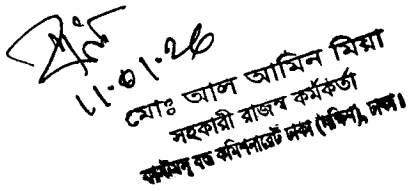 11.01.26
মোঃ আল আমিন মিয়া
সহকারী রাজস্ব কর্মকর্তা
কাস্টমস বন্ড কমিশনারেট ঢাকা (দক্ষিণ), ঢাকা।